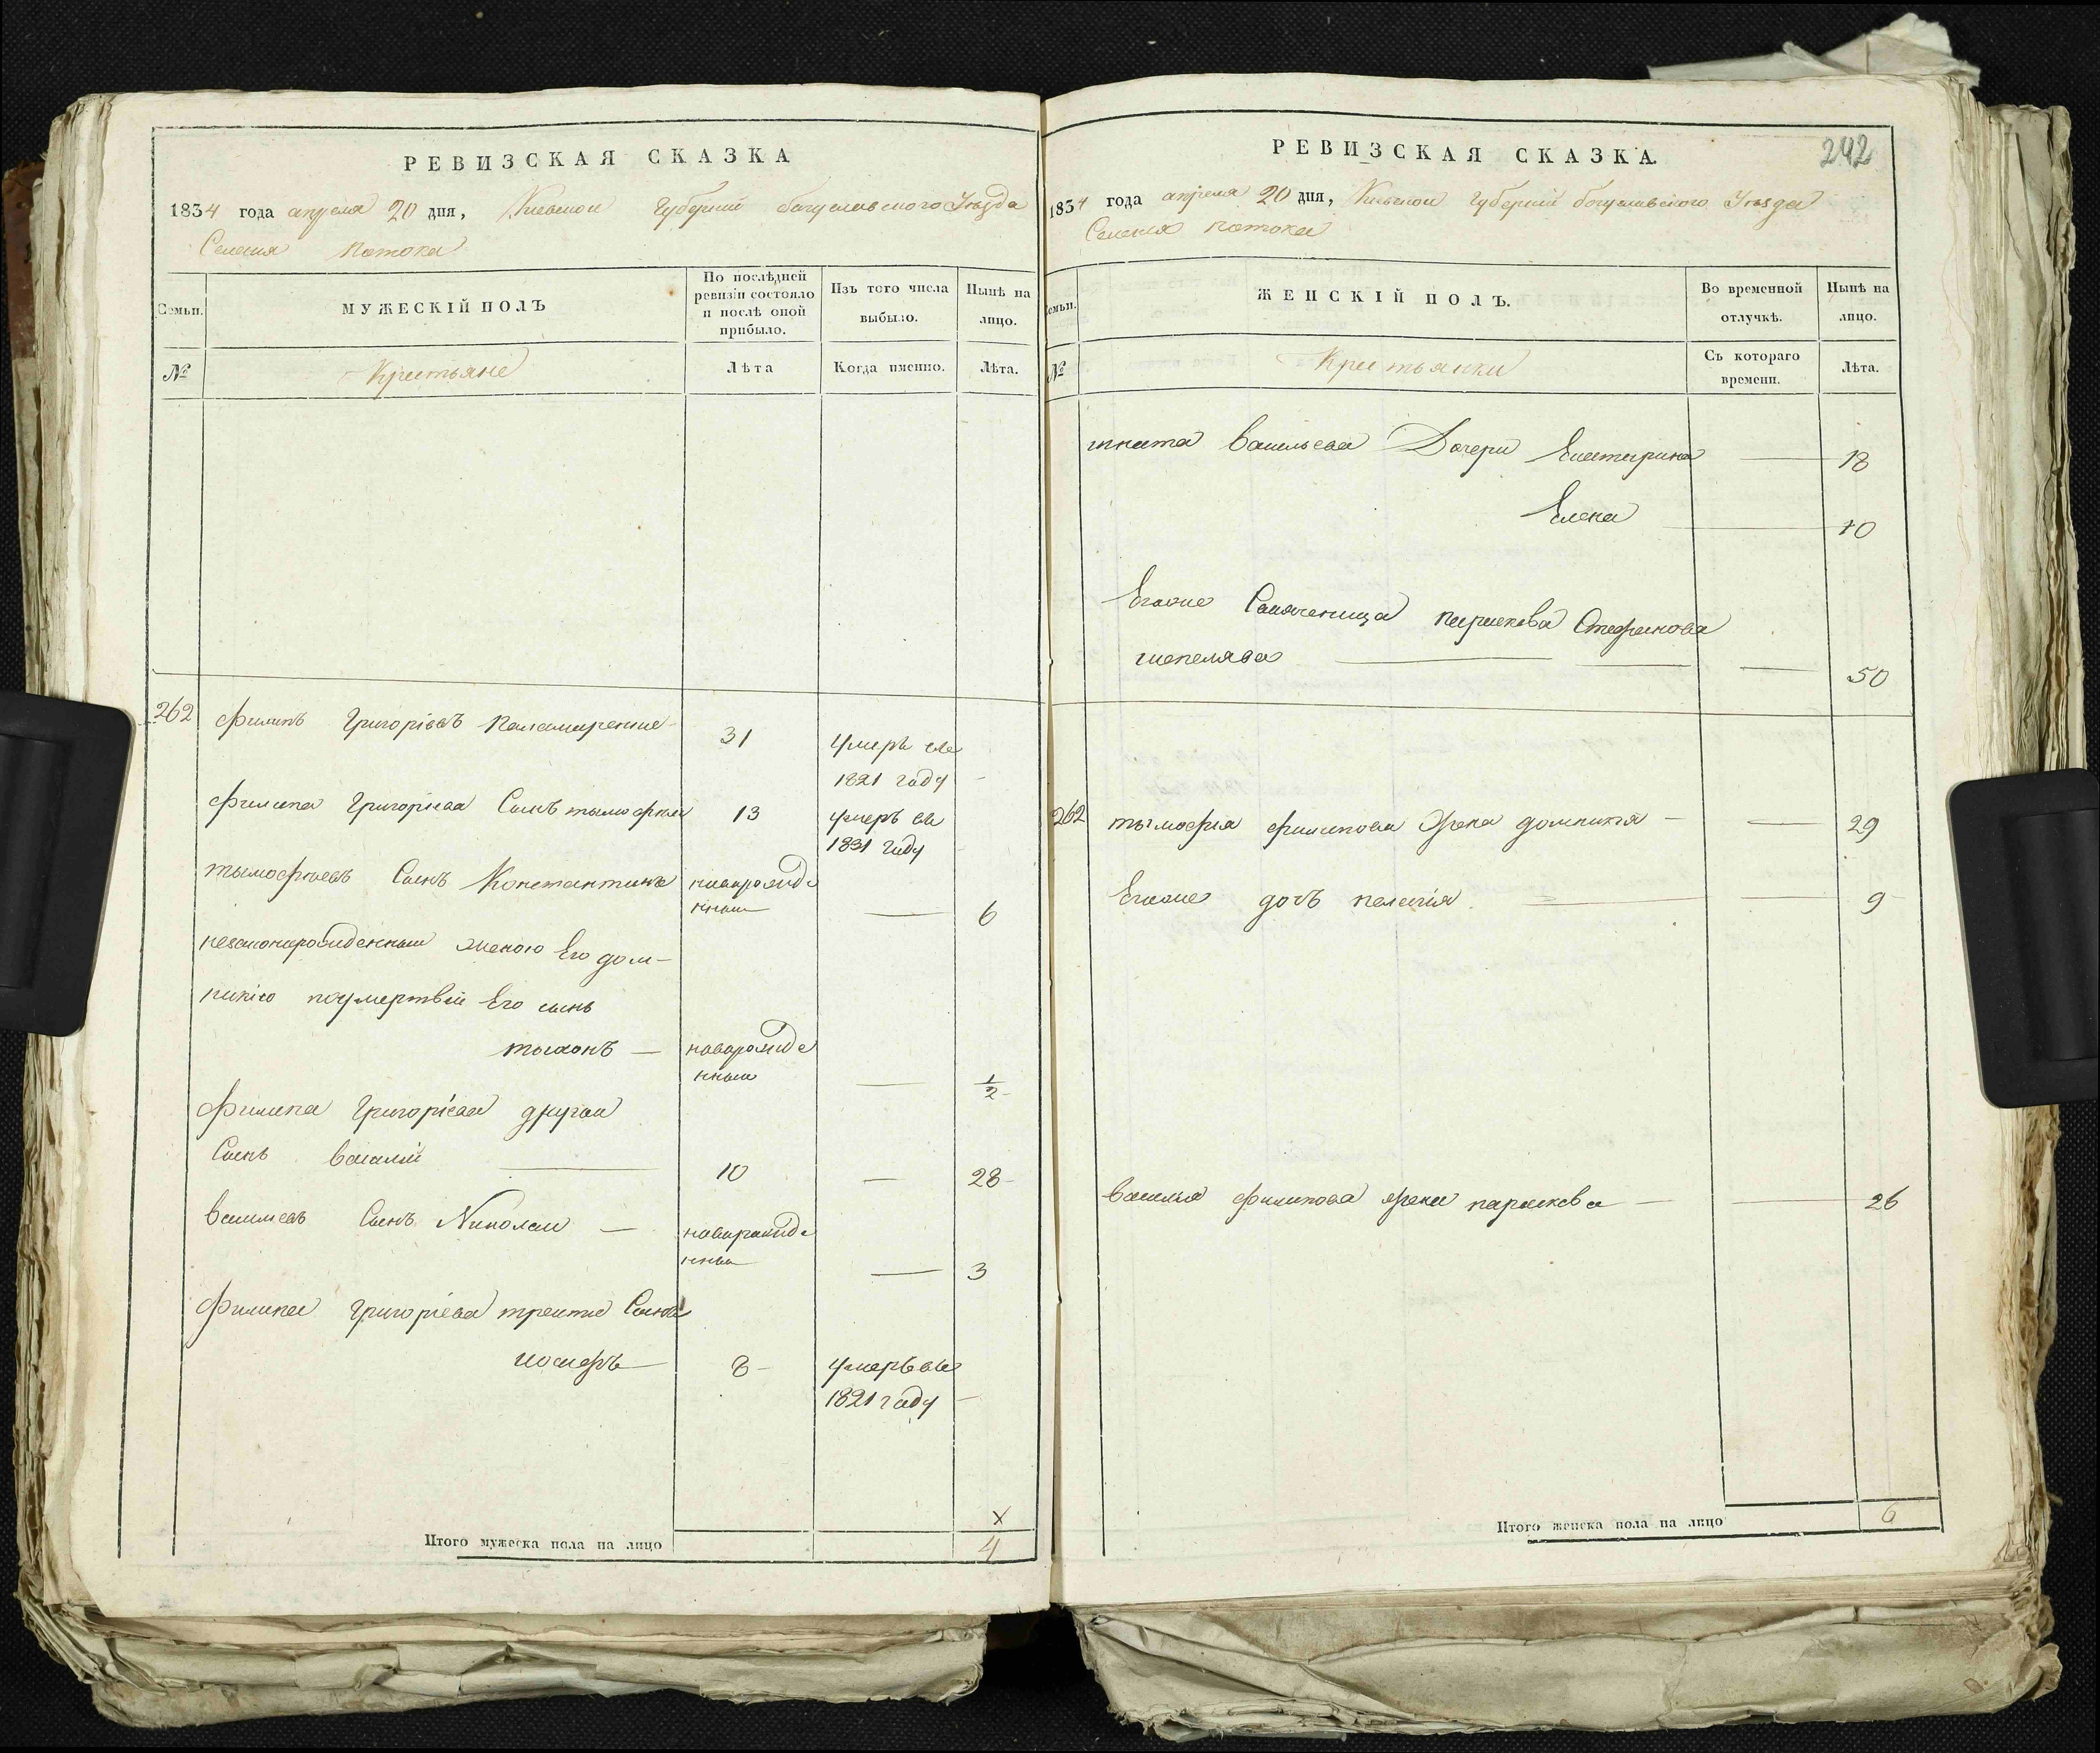 РЕВИЗСКАЯ СКАЗКА
1834 года апреля 20 дня, Киевской Губернии богуславского Уѣзда
Селения Потока
Семьи.
МУЖЕСКІЙ ПОЛЪ
По послѣдней ревизіи состояло и послѣ оной прибыло.
Изъ того числа выбыло.
Нынѣ на лицо.
№
Крестьяне
Лѣта
Когда именно.
Лѣта.
262 филипъ Григоріевъ Паламаренко 31 умеръ в 1821 году
филипа Григоріева Сынъ тымофей 13 умеръ в 1831 году
тымофѣевъ Сынъ Константинъ новорожденный 6
незаконорожденный женою Его домникіею поумертвіи Его сынъ
тихонъ — новорожденный 1/2
филипа Григоріева другой
Сынъ василій 10 — 28
васильевъ Сынъ Николай — новорожденный 3
филипа Григоріева третий Сынъ
иосифъ 8 умеръ в 1821 году
Итого мужеска пола на лицо 4
РЕВИЗСКАЯ СКАЗКА.
242
1834 года апреля 20 дня, Киевской Губернии богуславского Уѣзда
Селения Потока
Семьи.
ЖЕНСКІЙ ПОЛЪ.
Во временной отлучкѣ.
Нынѣ на лицо.
№
Крестьянки
Съ котораго времени.
Лѣта.
васильева Дочери Екатерина — 18
Елена 10
Параскева Стефанова
50
262 тымофея филипова жена домникия — 29
Егоже дочь пелагия 9
василия филипова жена параскева — 26
Итого женска пола на лицо 6